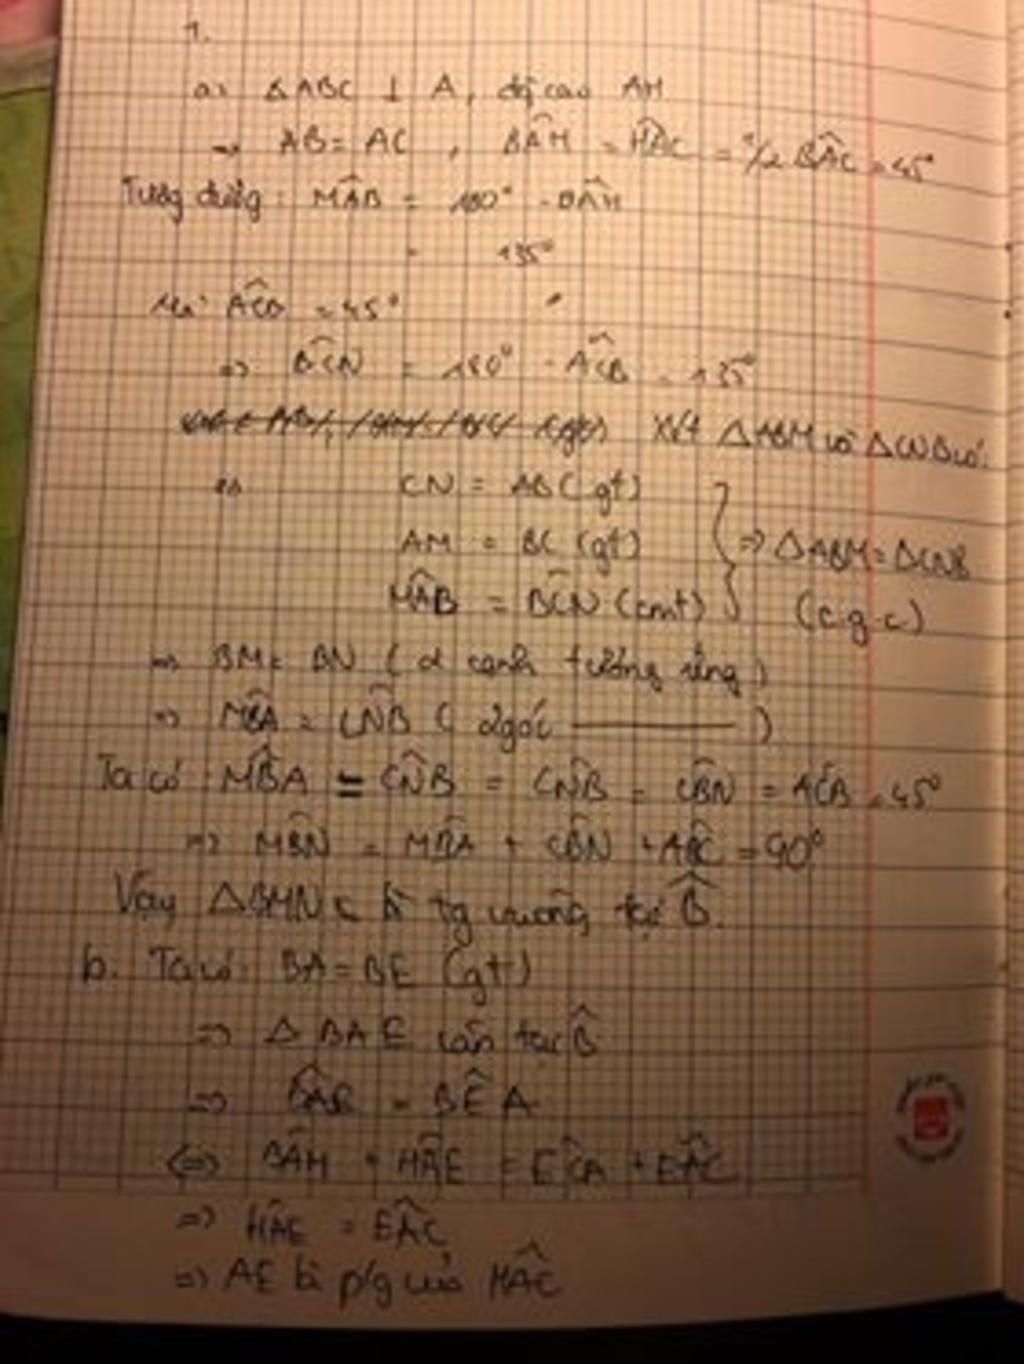 1.
a) ΔABC ⊥ A, đg cao AH
→ AB = AC, BÂH = HÂC = 1/2 BÂC = 45°
Tương đương: MÂB = 180° - BÂH
= 135°
Mà: AĈB = 45°
=> BĈN = 180° - AĈB = 135°
Xét ΔABM và ΔCNB có:
=> CN = AB (gt)
AM = BC (gt) } => ΔABM = ΔCNB
MÂB = BĈN (cmt) (c.g.c)
=> BM = BN (2 cạnh tương ứng)
=> MB̂A = CN̂B (2 góc ———)
Ta có: MB̂A = CN̂B = CN̂B = CB̂N = AĈB = 45°
=> MB̂N = MB̂A + CB̂N + AB̂C = 90°
Vậy ΔBMN là tg vuông tại B̂.
b. Ta có: BA = BE (gt)
=> Δ BAE cân tại B̂
=> = BÊA
<=> BÂH + HÂE = EĈA + EÂC
=> HÂE = EÂC
=> AE là p/g của HÂC